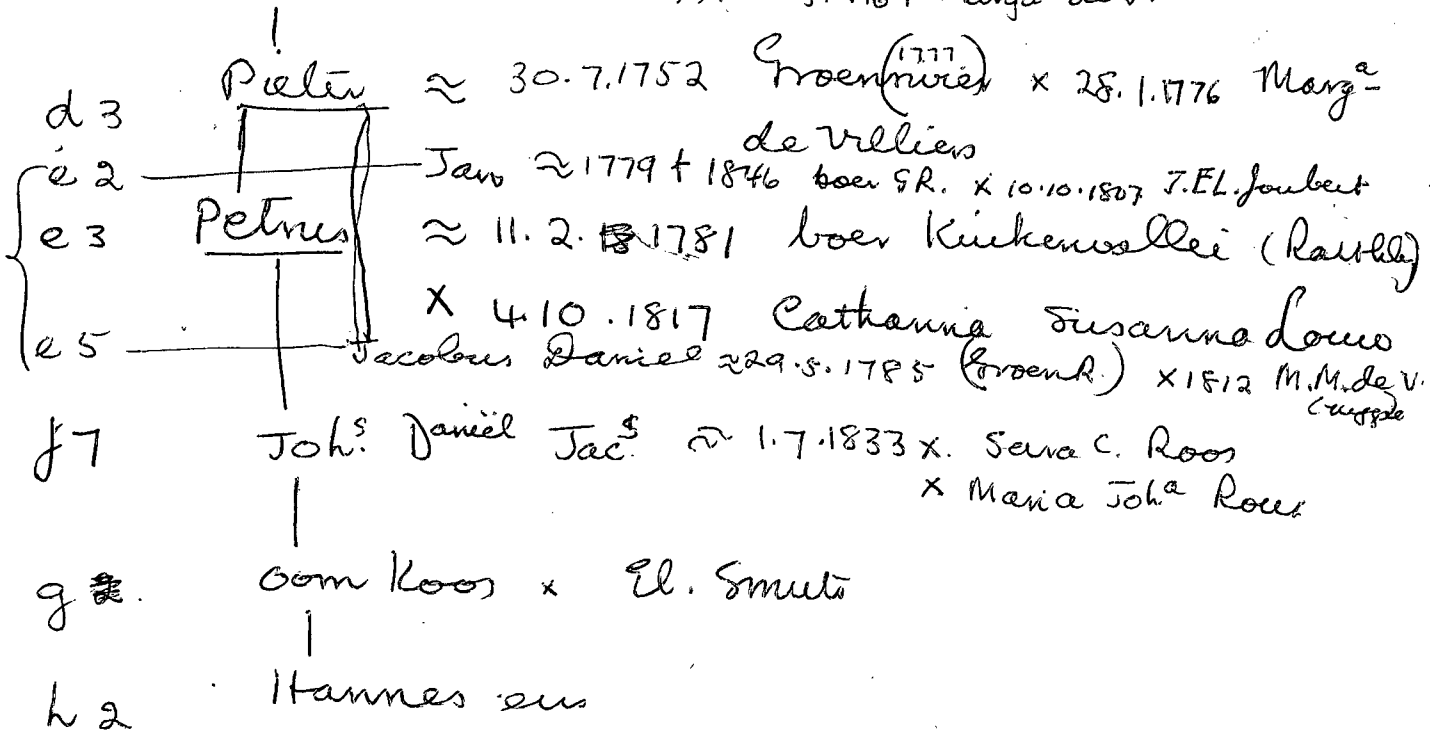 d3 Pieter ≈ 30.7.1752 Groen(1777) x 28.1.1776 Marg.a
de Villiers
e2 Jan ≈ 1779 † 1846 boer GR. x 10.10.1807 J.EL.Joubert
e3 Petrus ≈ 11.2.1781 boer
x 4.10.1817 Catharina Susanna Louw
e5 Jacobus Daniel ≈ 29.5.1785 (GroenR.) x 1812 M.M.de V.
f7 Joh.s Daniël Jac.s ≈ 1.7.1833 x. Sara C. Roos
x Maria Joh.a Roux
g. oom Koos x El. Smuts
h2 Hannes ens